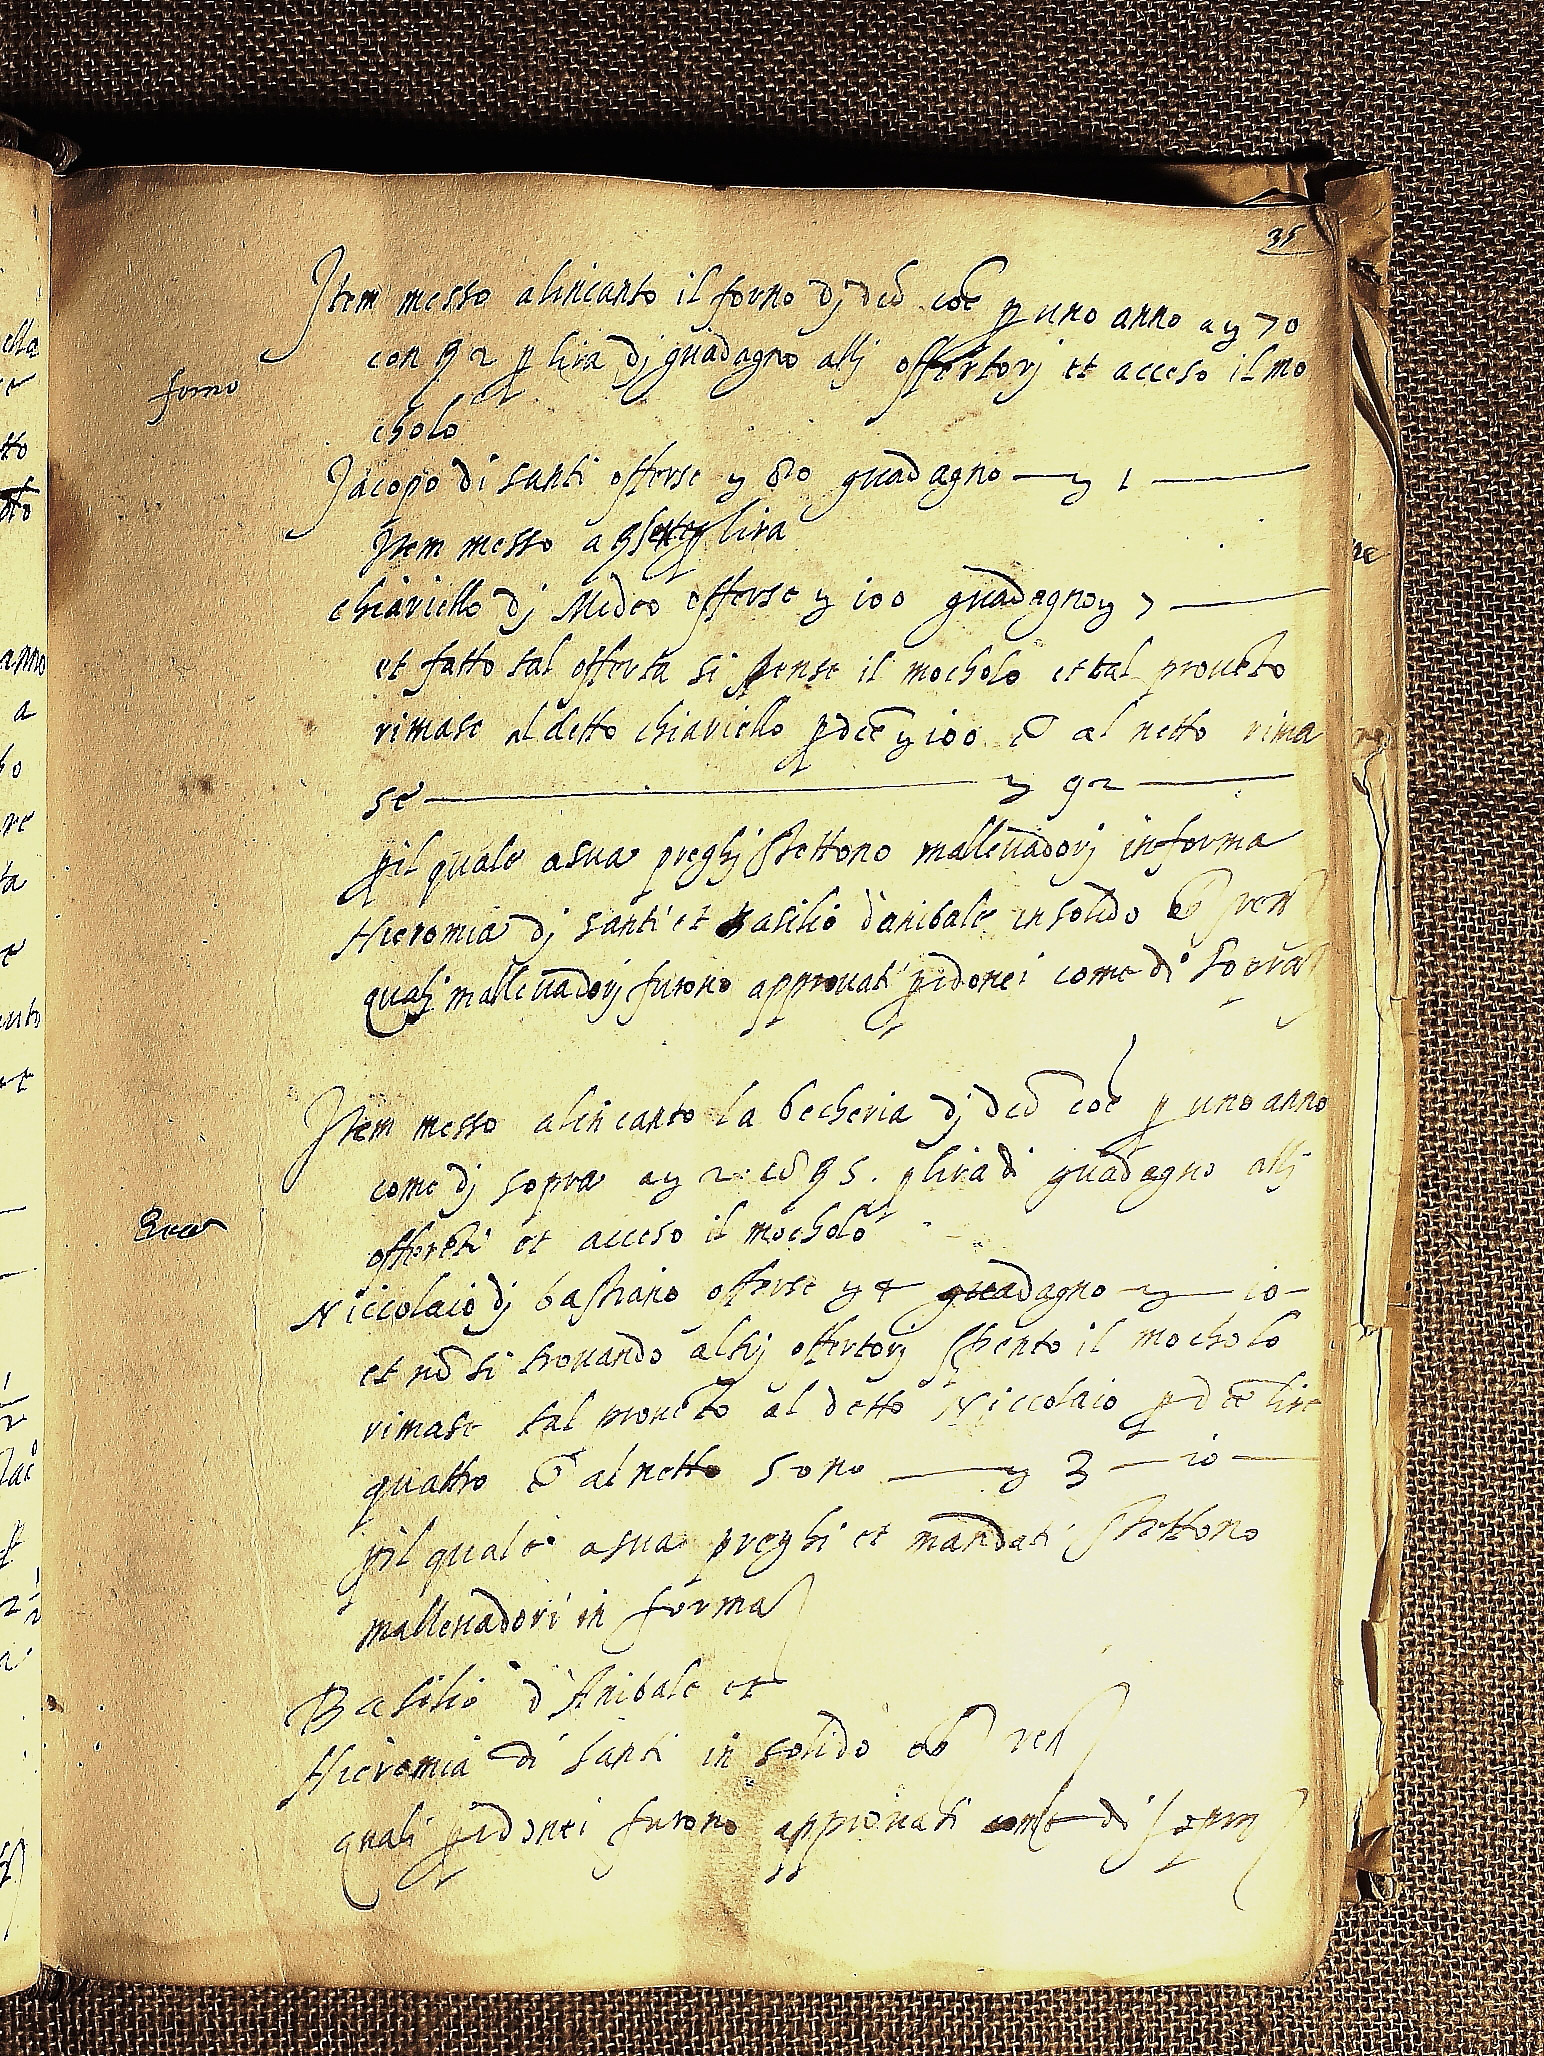 35
Item messo alincanto il forno dj dco coe p uno anno a y 70
con q 2 p lira dj guadagno allj offertorj et acceso il mo
forno
cholo
Jacopo di santi offerse y 80 guadagno — y 1 —
Item messo a q sette p lira
chiariello dj Medeo offerse y 100 guadagno y 7 —
et fatto tal offerta si spense il mocholo et tal proueto
rimase al detto chiariello p dce y 100 e al netto rima
se — y 92 —
pil quale a sua preghj stettono malleuadorj in forma
Hieromia dj santi et Basilio d'anibale in solido
qualj malleuadorj furono approuati pidonei come di sopra
Item messo alincanto la becheria dj dco coe p uno anno
come dj sopra a y 2: co q 5. p lira di guadagno allj
offereti et acceso il mocholo
Niccolaio dj bastiano offerse y 4 guadagno — y — 10 —
et no si trouando altrj offertorj spento il mocholo
rimase tal proueto al detto Niccolaio p dce lire
quattro e al netto sono — y 3 — 10 —
pil quale a sua preghi et mandati stettono
malleuadori in forma
Basilio d'Anibale et
Hieromia di santi in solido
quali pidonei furono approuati come di sopra